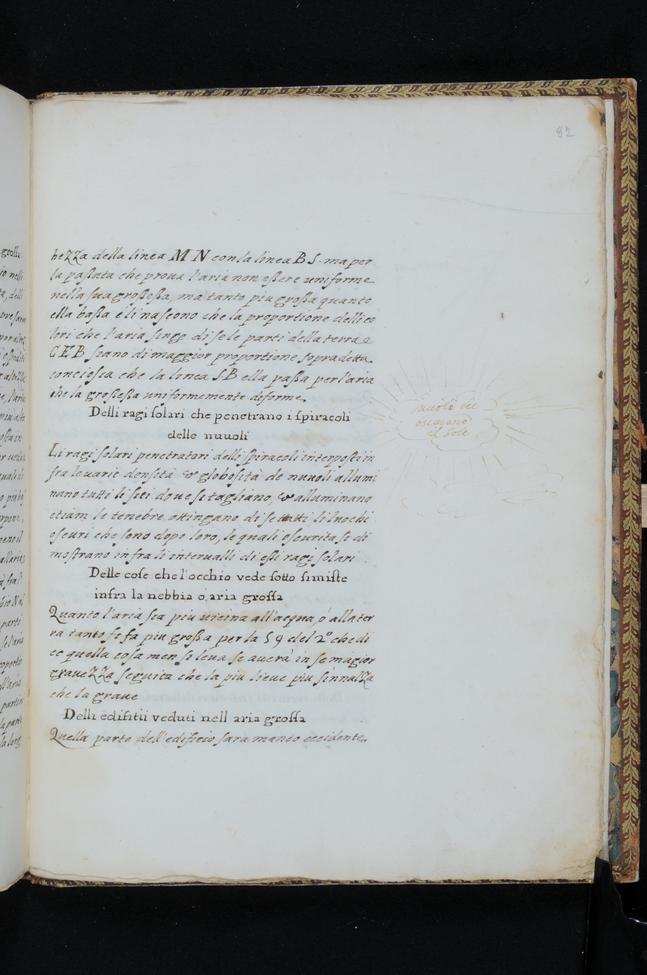 82
hezza della linea M N con la linea B S. ma per
la passata che proua l'aria non essere uniforme
nella sua grossessa, ma tanto piu grossa quanto
ella bassa e li nascono che la proportione delli co
lori che l'aria di se le parti della terra e
C E B siano di maggior proportione sopradetta
conciosia che la linea S B ella passa per l'aria
che la grossessa uniformemente disforme
Delli ragi solari che penetrano i spiracoli
delle nuuoli
Li ragi solari penetratori delli spiracoli interposti in
fra le uarie densità & globosità de nuuoli allumi
nano tutti li siti doue si tagliano, & alluminano
etiam le tenebre ettingano di se tutti li luochi
oscuri che sono dopo loro, le quali oscurita si di
mostrano infra li interualli di essi ragi solari
Delle cose che l'occhio vede sotto se miste
infra la nebbia o aria grossa
Quanto l'aria sia piu uicina all'acqua, ó alla ter
ra tanto si fa piu grossa per la 59 del 2º che di
ce quella cosa men si leua se auerà in se magior
grauezza seguita che la piu lieue piu s'innalza
che la graue
Delli edifitii veduti nell aria grossa
Quella parte dell'edifitio sara manco euidente
nuuoli che
oscurano
il sole